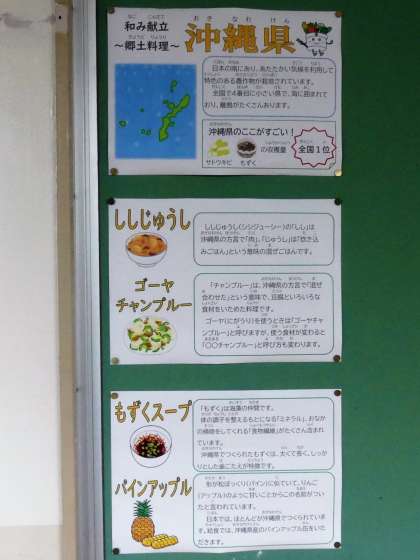 和み献立
～郷土料理～
沖縄県
日本の南にあり、あたたかい気候を利用して
特色のある農作物が栽培されています。
全国で4番目に小さい県で、海に囲まれて
おり、離島がたくさんあります。
沖縄県のここがすごい！
サトウキビ
もずく
の収穫量
全国1位
ししじゅうし
ししじゅうし(シシジューシー)の「しし」は
沖縄県の方言で「肉」、「じゅうし」は「炊き込
みごはん」という意味の混ぜごはんです。
ゴーヤ
チャンプルー
「チャンプルー」は、沖縄県の方言で「混ぜ
合わせた」という意味で、豆腐といろいろな
食材をいためた料理です。
ゴーヤ(にがうり)を使うときは「ゴーヤチャ
ンプルー」と呼びますが、使う食材が変わると
「〇〇チャンプルー」と呼び方も変わります。
もずくスープ
「もずく」は海藻の仲間です。
体の調子を整えるもとになる「ミネラル」、おなか
の掃除をしてくれる「食物繊維」がたくさん含まれ
ています。
沖縄県でつくられたもずくは、太くて長く、しっか
りとした歯ごたえが特徴です。
パインアップル
形が松ぼっくり(パイン)に似ていて、りんご
(アップル)のように甘いことからこの名前がつい
たと言われています。
日本では、ほとんどが沖縄県でつくられていま
す。給食では、沖縄県産のパインアップル缶をいた
だきます。